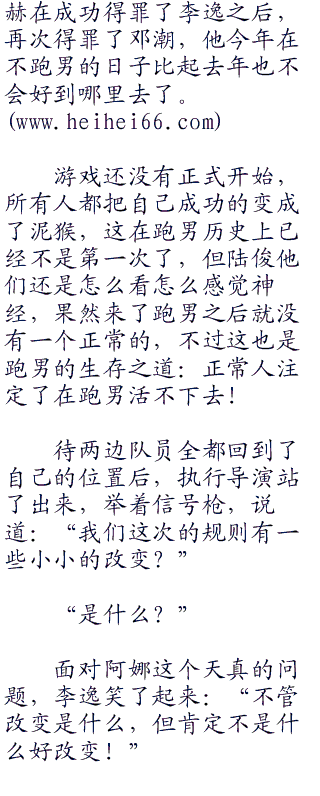 赫在成功得罪了李逸之后，
再次得罪了邓潮，他今年在
不跑男的日子比起去年也不
会好到哪里去了。
(www.heihei66.com)
游戏还没有正式开始，
所有人都把自己成功的变成
了泥猴，这在跑男历史上已
经不是第一次了，但陆俊他
们还是怎么看怎么感觉神
经，果然来了跑男之后就没
有一个正常的，不过这也是
跑男的生存之道：正常人注
定了在跑男活不下去！
待两边队员全都回到了
自己的位置后，执行导演站
了出来，举着信号枪，说
道：“我们这次的规则有一
些小小的改变？”
“是什么？”
面对阿娜这个天真的问
题，李逸笑了起来：“不管
改变是什么，但肯定不是什
么好改变！”